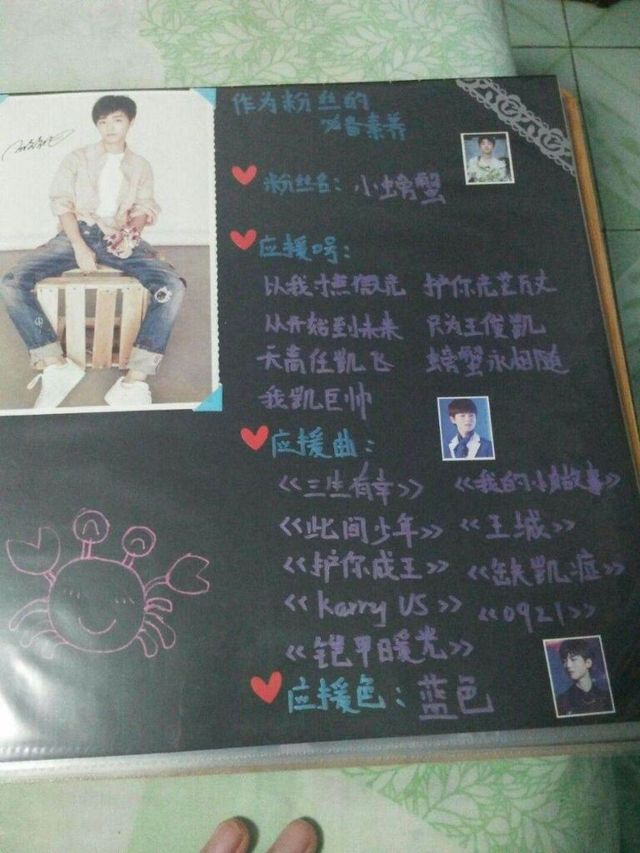 作为粉丝的
必备素养
粉丝名：小螃蟹
应援号：
从我才 微光 护你光芒万丈
从开始到未来 只为王俊凯
天高任凯飞 螃蟹永相随
我凯巨帅
应援曲：
《三生有幸》 《我的小故事》
《此间少年》 《王城》
《护你成王》 《缺凯症》
《Karry US》 《0921》
《铠甲暖光》
应援色：蓝色